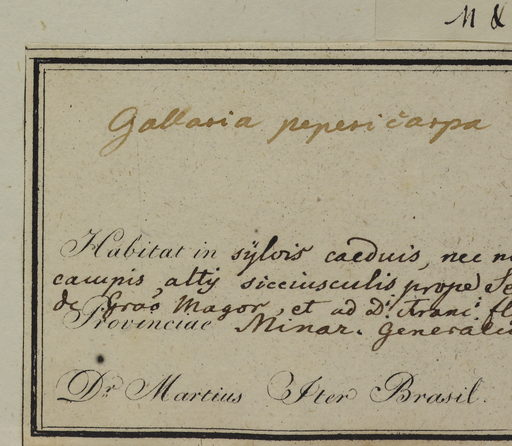 M &
Gallaria peperi carpa
Habitat in sylvis caeduis, nec n
campis, altis sicciusculis prope Se
de Grao Magor, et ad D. Franc. fl
Provinciae Minar. Generaliu
Dr. Martius Iter Brasil.